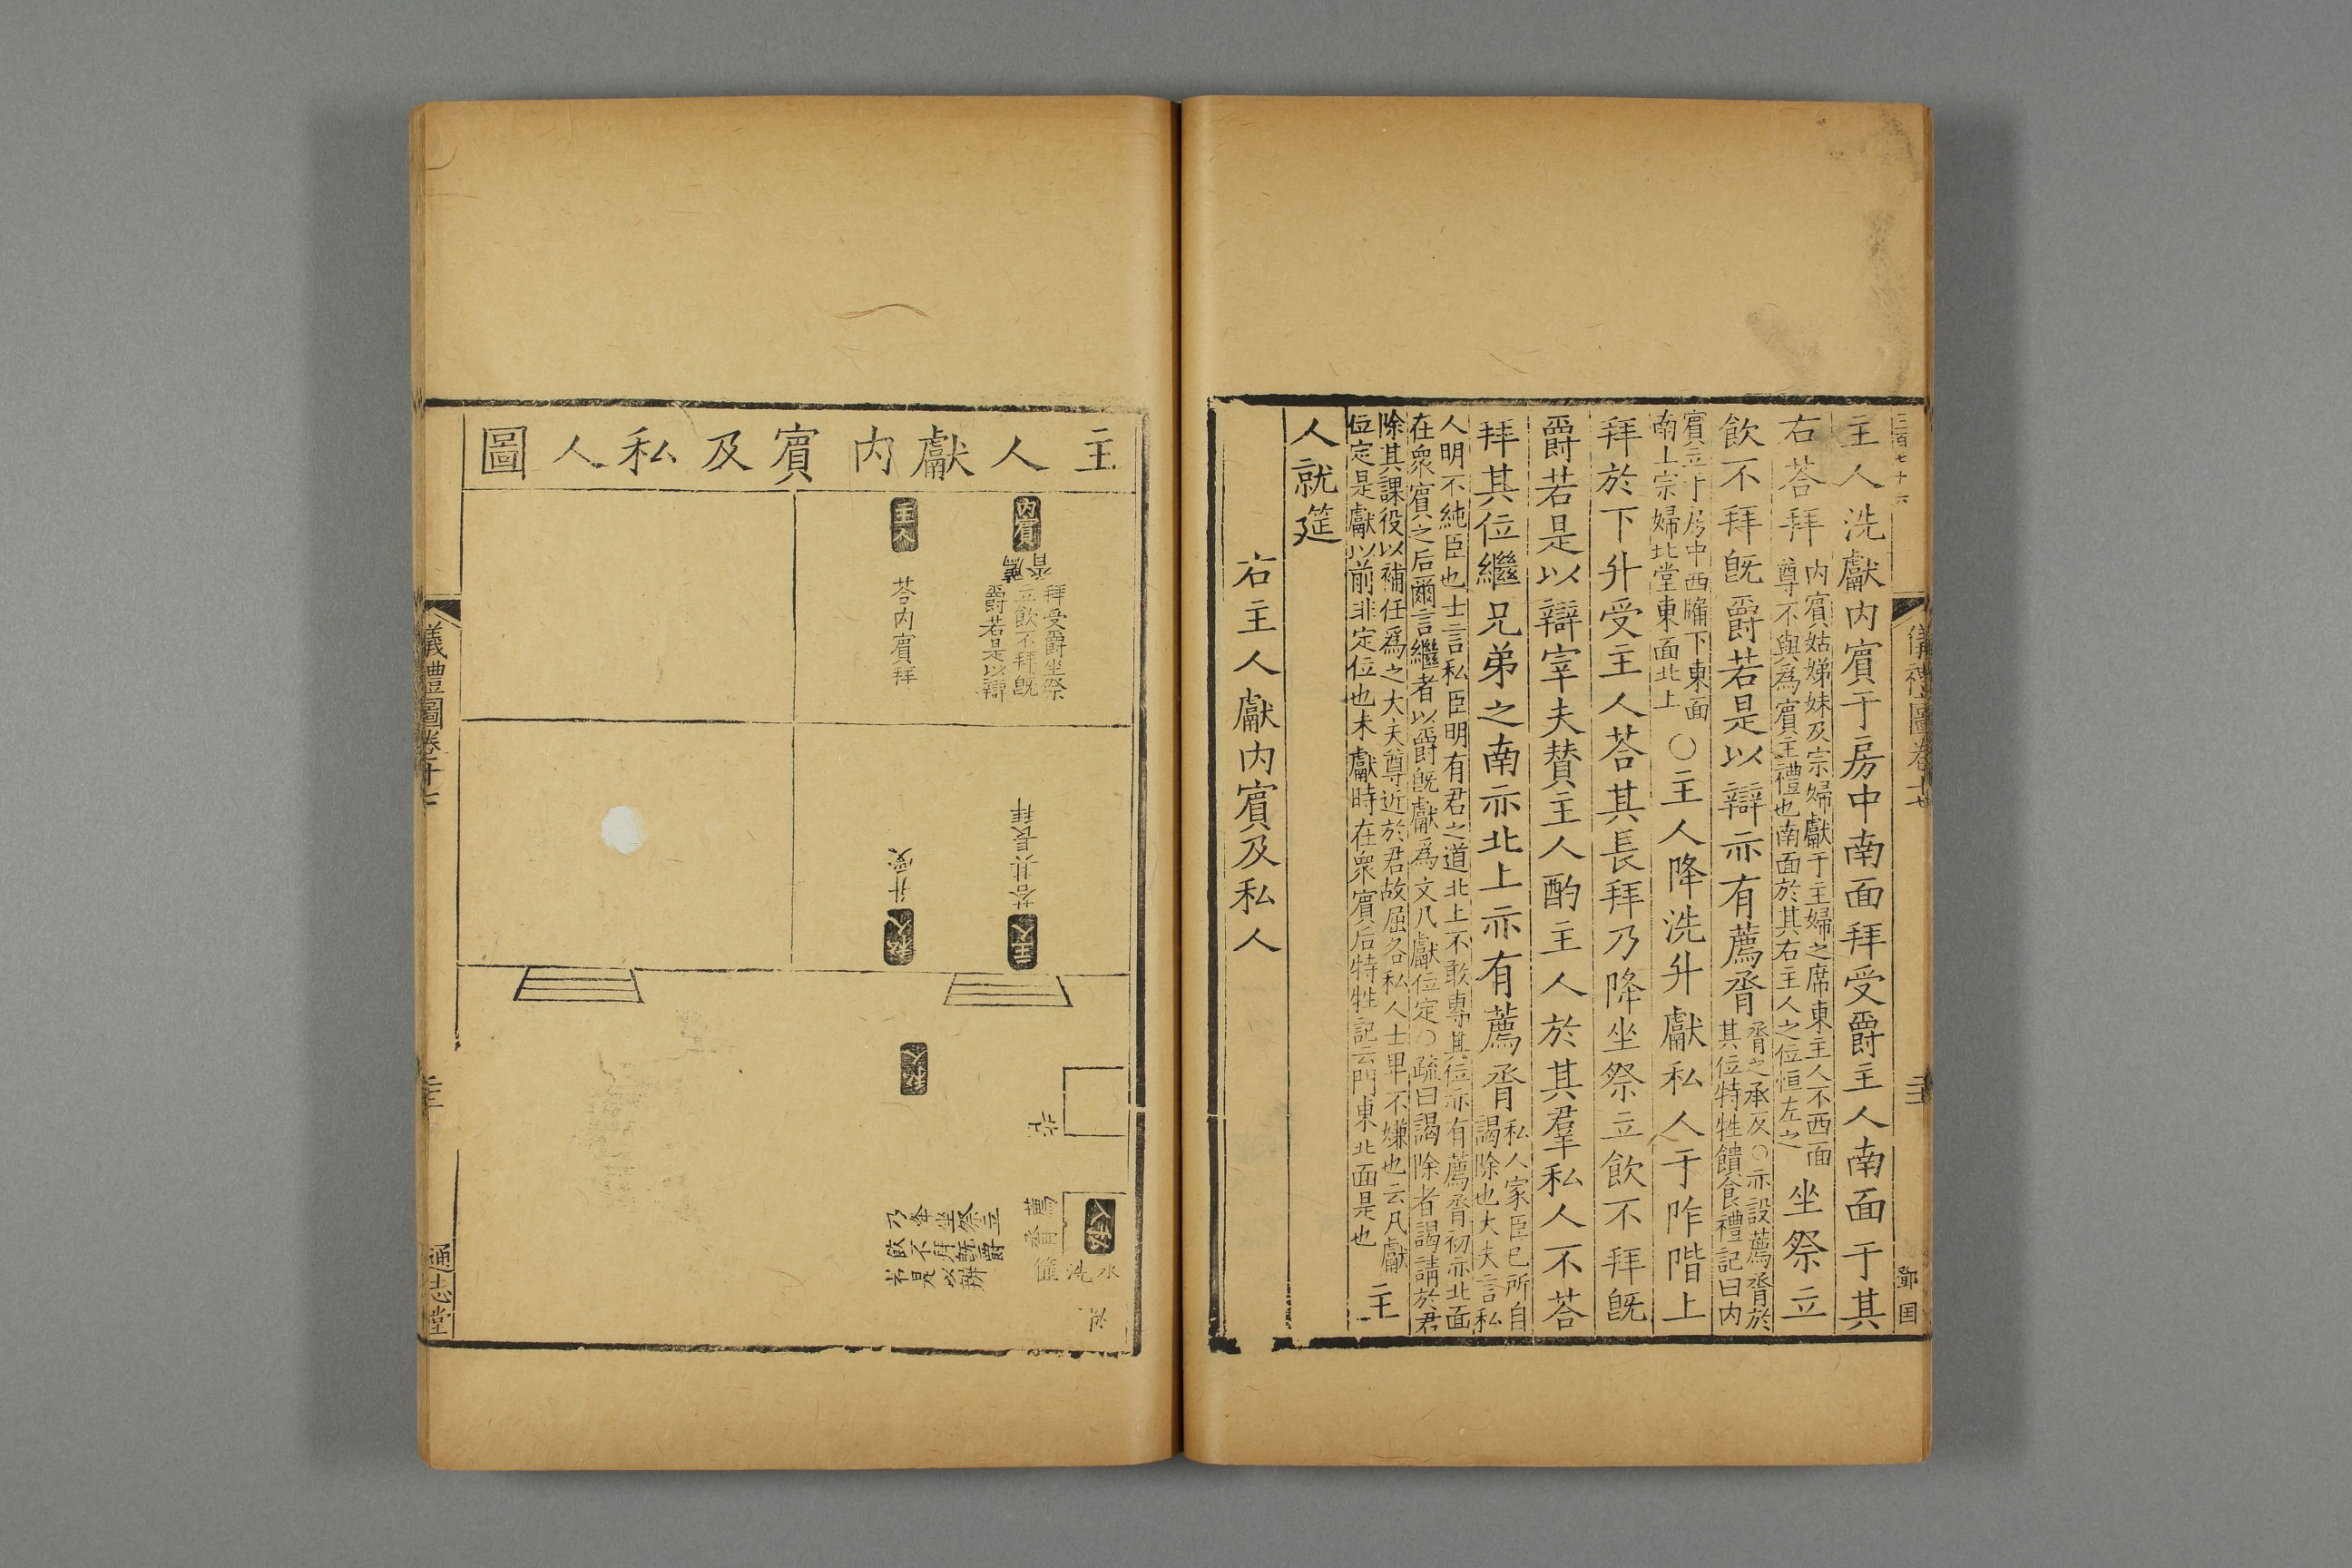 二百七十六
儀禮圖卷十七
鄧国
主人洗獻内賓于房中南面拜受爵主人南面于其
右荅拜
内賓姑姊妹及宗婦獻于主婦之席東主人不西面
尊不與為賓主禮也南面於其右主人之位恒左之
坐祭立
飲不拜旣爵若是以辯亦有薦脀
脀之承反○亦設薦脀於
其位特牲饋食禮記曰内
賓立于房中西牖下東面
南上宗婦北堂東面北上
○主人降洗升獻私人于阼階上
拜於下升受主人荅其長拜乃降坐祭立飲不拜旣
爵若是以辯宰夫贊主人酌主人於其羣私人不荅
拜其位繼兄弟之南亦北上亦有薦脀
私人家臣已所自
謁除也大夫言私
人明不純臣也士言私臣明有君之道北上不敢專其位亦有薦脀初亦北面
在衆賓之后爾言繼者以爵旣獻為文凡獻位定○疏曰謁除者謁請於君
除其課役以補任為之大夫尊近於君故屈名私人士卑不嫌也云凡獻
位定是獻以前非定位也未獻時在衆賓后特牲記云門東北面是也
主
人就筵
右主人獻内賓及私人
主人獻内賓及私人圖
内賓
薦脀
拜受爵坐祭
立飲不拜旣
爵若是以辯
主人
荅内賓拜
荅其長拜
主人
升受
私人
私人
北
薦脀
私人
篚洗水
乃降坐祭立
飲不拜旣爵
若是以辯
儀禮圖卷十七
通志堂